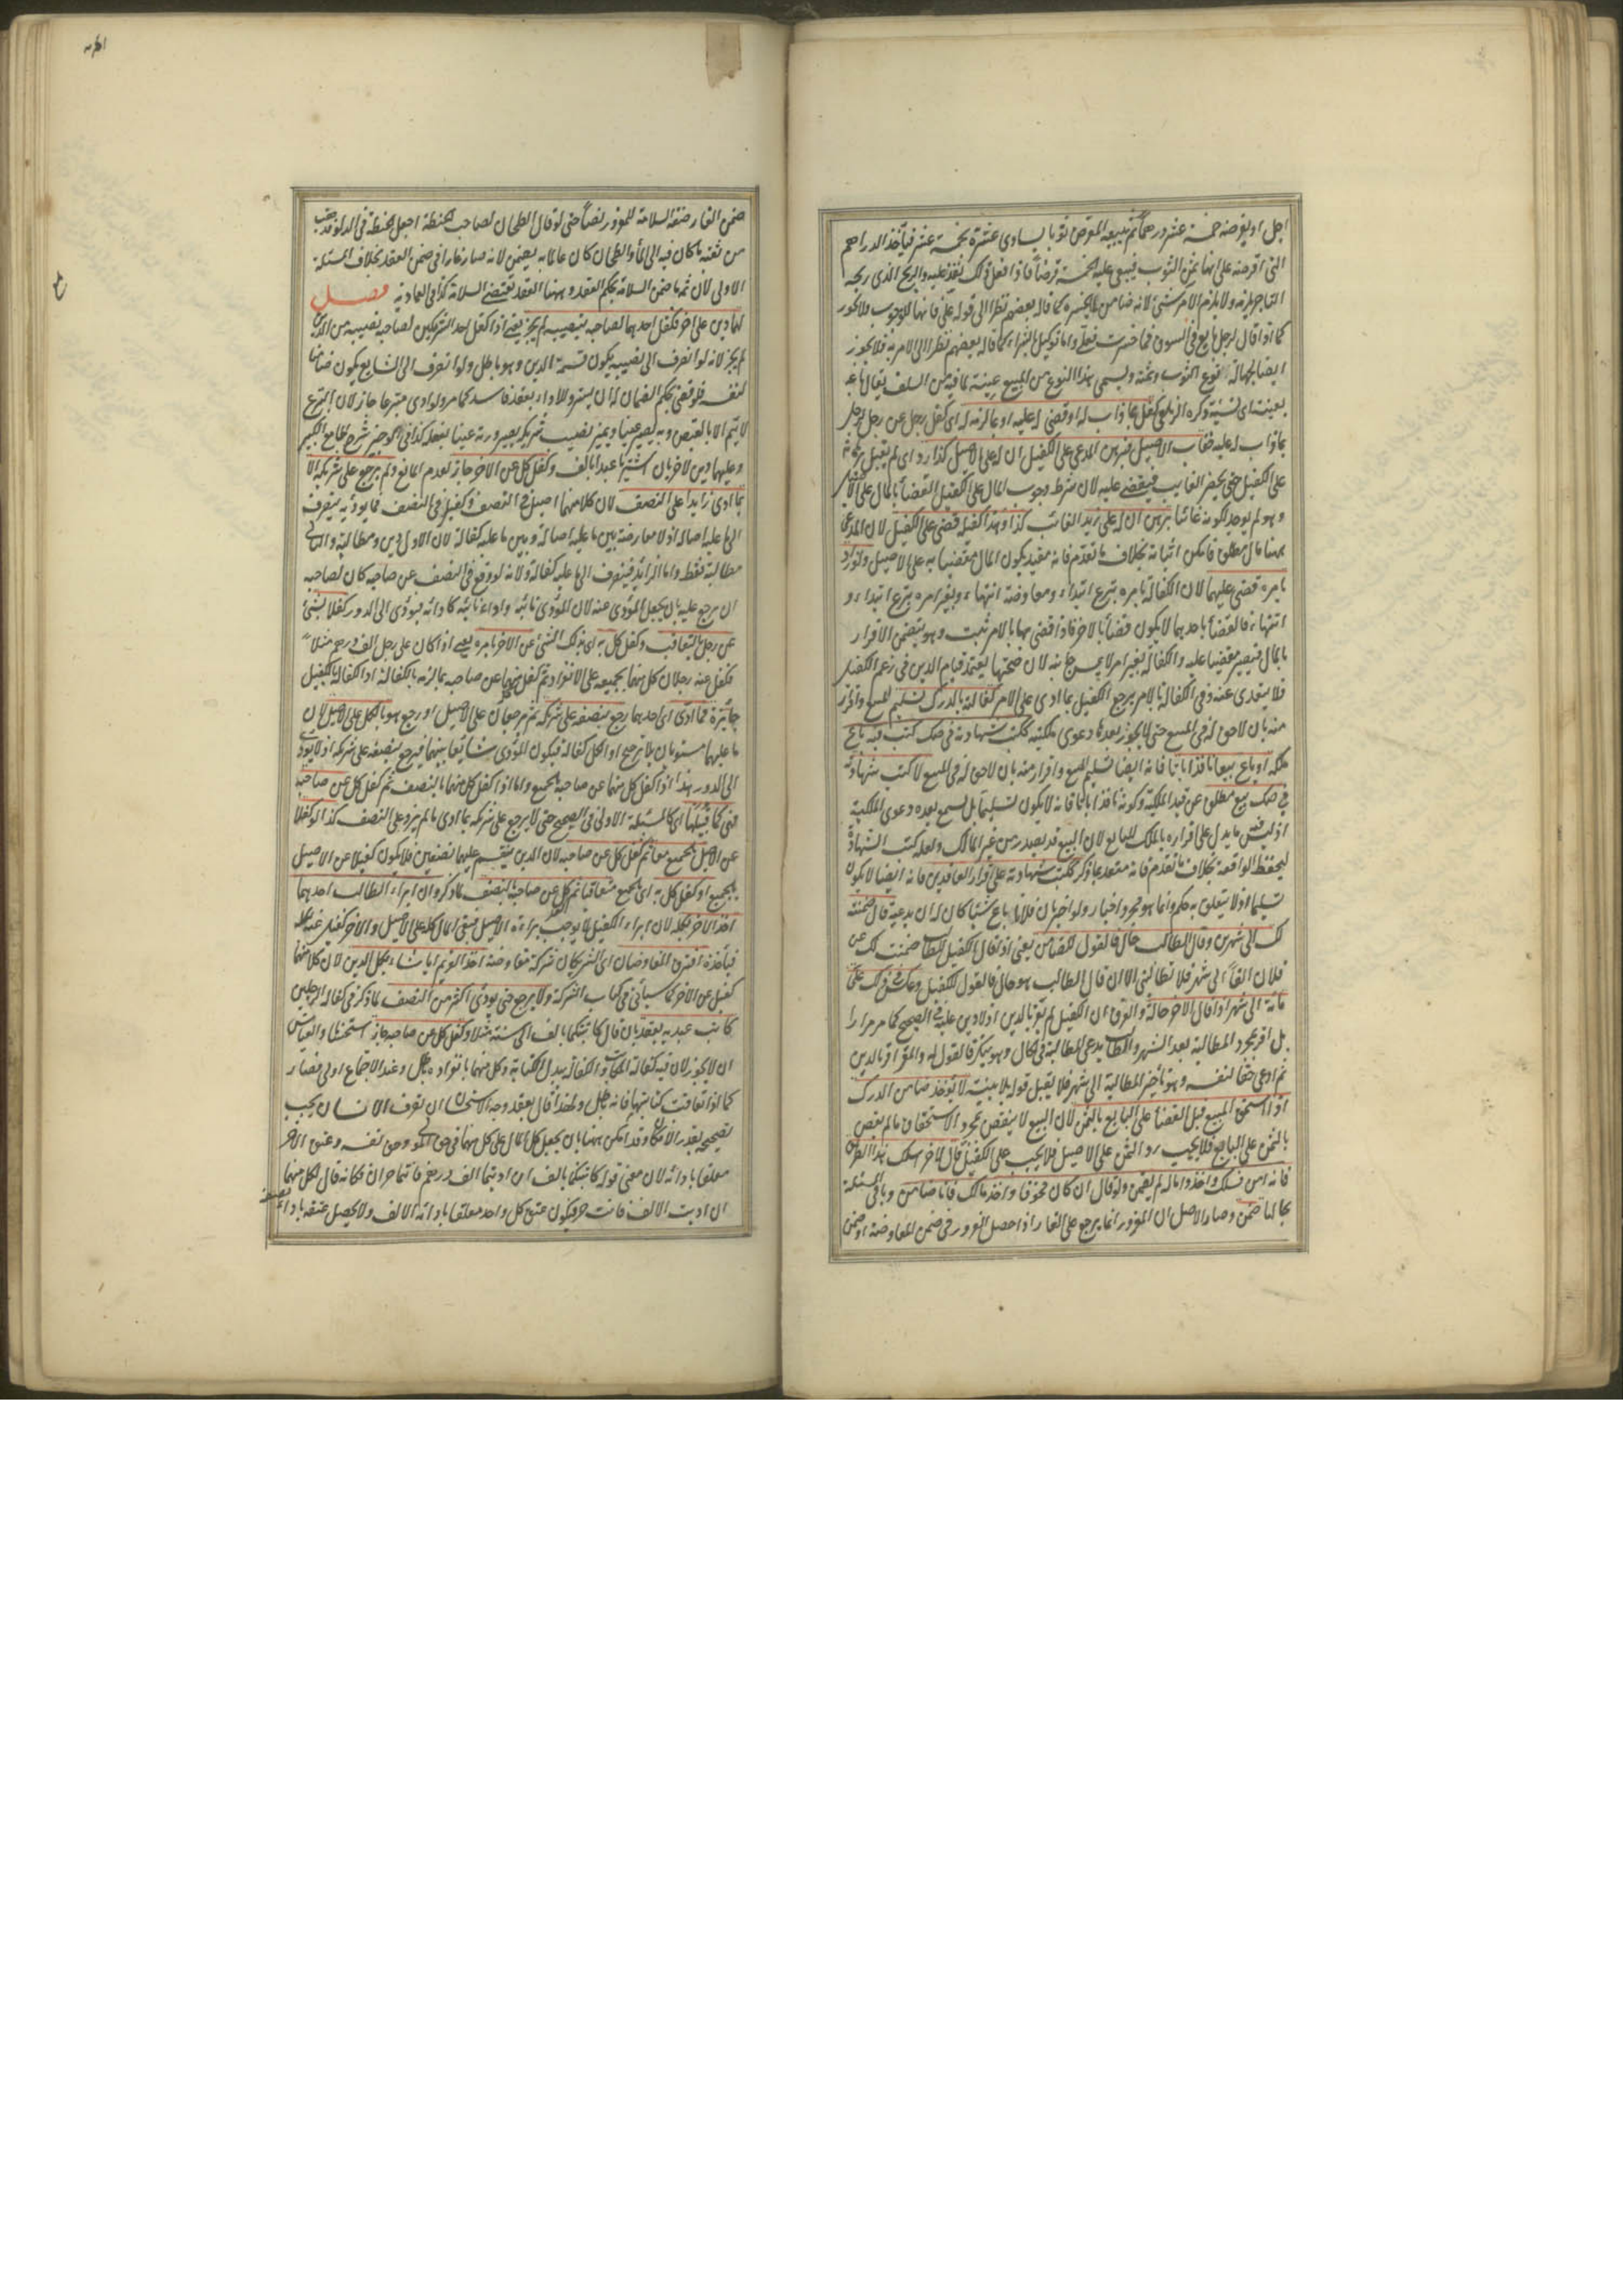 اجل او يقرضه خمسة عشر درهما ثم يبيعه المقرض ثوبا يساوى عشرة بخمسة عشر فيأخذ الدراهم
التى اقرضه على انها ثمن الثوب فيبقى عليه الخمسة قرضا فاذا فعل ذلك نفذ عليه والربح الذى ربحه
التاجر يلزمه ولا يلزم الامر شئ لانه ضامن لما يخسره كما قاله بعضهم نظرا الى قوله على فانها للوجوب فلا يجوز
كما اذا قال لرجل بايع فى السوق فما خسرت فعلى واما توكيل بالشراء كما قاله بعضهم نظرا الى الامر به فلا يجوز
ايضا لجهالة نوع الثوب وثمنه ويسمى هذا النوع من البيع عينة لما فيه من السلف يقال باعه
بعينة اى نسيئة ذكره الزيلعى كفل بما ذاب له او قضى له عليه او بما لزمه له اى كفل رجل عن رجل لرجل
بما ذاب له عليه فغاب الاصيل فبرهن المدعى على الكفيل ان له على الاصيل كذا رد اى لم يقبل برهانه
على الكفيل حتى يحضر الغايب فيقضى عليه لان شرط وجوب المال على الكفيل القضأ بالمال على الاصيل
وهو لم يوجد لكونه غائبا برهن ان له على زيد الغائب كذا وهذا كفيله قضى على الكفيل لان المدعى
ههنا مال مطلق فامكن اثباته بخلاف ما تقدم فانه مقيد بكون المال مقضيا به على الاصيل ولو زاد
بامره قضى عليهما لان الكفالة بامره تبرع ابتداء ومعاوضة انتهاء وبغير امره تبرع ابتداء و
انتهاء فالقضأ باحدهما لا يكون قضأ بالاخر فاذا قضى بها بالامر ثبت وهو يتضمن الاقرار
بالمال فيصير مقضيا عليه والكفالة بغير امر لا يمس جانبه لان صحتها يعتمد قيام الدين فى زعم الكفيل
فلا يتعدى عنه وفى الكفالة بالامر يرجع الكفيل بما ادى على الامر كفالته بالدرك تسليم للمبيع واقرار
منه بان لا حق له فى المبيع حتى لا يجوز بعدها دعوى ملكيته ككتب شهادته فى صك كتب فيه باع
ملكه او باع بيعا نافذا باتا فانه ايضا تسليم للمبيع واقرار منه بان لا حق له فى المبيع لا كتب شهادته
فى صك بيع مطلق عن قيد الملكية وكونه نافذا باتا فانه لا يكون تسليما بل تسمع بعده دعوى الملكية
اذ ليس فيه ما يدل على اقراره بالملك للبايع لان البيع قد يصدر من غير المالك ولعله كتب الشهادة
ليحفظ الواقعة بخلاف ما تقدم فانه مقيد بما ذكر ككتب شهادته على اقرار العاقدين فانه ايضا لا يكون
تسليما اذ لا يتعلق به حكم وانما هو مجرد اخبار ولو اخبر بان فلانا باع شيئا كان له ان يدعيه قال ضمنته
لك الى شهر وقال الطالب حال فالقول للضامن يعنى اذا قال الكفيل للطالب ضمنت لك عن
فلان الفا الى شهر فلا تطالبنى الان قال الطالب هو حال فالقول للكفيل وعكس فى لك على
مائة الى شهر اذا قال الاخر حالة والفرق ان الكفيل لم يقر بالدين اذ لا دين عليه فى الصحيح كما مر مرارا
بل اقر بمجرد المطالبة بعد الشهر والطالب يدعى المطالبة فى الحال وهو ينكر فالقول له والمقر اقر بالدين
ثم ادعى حقا لنفسه وهو تأخير المطالبة الى شهر فلا يقبل قوله بلا بينة لا يؤخذ ضامن الدرك
اذا استحق المبيع قبل القضأ على البايع بالثمن لان البيع لا ينتقض بمجرد الاستحقاق ما لم يقض
بالثمن على البايع فلا يجب رد الثمن على الاصيل فلا يجب على الكفيل قال لاخر اسلك هذا الطريق
فانه امن فسلك واخذ ماله لم يضمن ولو قال ان كان مخوفا واخذ مالك فانا ضامن وباقى المسئلة
بحالها ضمن وصار الاصل ان المغرور انما يرجع على الغار اذا حصل الغرور فى ضمن المعاوضة او ضمن
ضمن الغار صفة السلامة للمغرور نصا حتى لو قال الطحان لصاحب الحنطة اجعل الحنطة فى الدلو فذهب
من ثقبه ما كان فيه الى المأ والطحان كان عالما به يضمن لانه صار غارا فى ضمن العقد بخلاف المسئلة
الاولى لان ثمه ما ضمن السلامة بحكم العقد وههنا العقد يقتضى السلامة كذا فى العمادية فصل
لهما دين على اخر فكفل احدهما لصاحبه بنصيبه لم يجز يعنى اذا كفل احد الشريكين لصاحبه بنصيبه من الدين
لم يجز لانه لو انصرف الى نصيبه يكون قسمة الدين وهو باطل ولو انصرف الى الشايع يكون ضامنا
لنفسه فلو قضى بحكم الضمان له ان يسترد للاداء بعقد فاسد كما مر ولو ادى متبرعا جاز لان التبرع
لا يتم الا بالقبض وبه يصير عينا ويميز نصيب شريكه بصيرورته عينا بفعله كذا فى الوجيز شرح الجامع الكبير
وعليهما دين لاخر بان اشتريا عبدا بالف وكفل كل عن الاخر جاز لعدم المانع ولم يرجع على شريكه الا
بما ادى زايدا على النصف لان كلا منهما اصيل فى النصف وكفيل فى النصف فما يؤديه ينصرف
الى ما عليه اصالة اذ لا معارضة بين ما عليه اصالة وبين ما عليه كفالة لان الاول دين ومطالبة والثانى
مطالبة فقط واما الزايد فينصرف الى ما عليه كفالة ولانه لو وقع فى النصف عن صاحبه كان لصاحبه
ان يرجع عليه بان يجعل المؤدى عنه لان المؤدى نائبه واداء نائبه كادائه فيؤدى الى الدور كفلا بشئ
عن رجل بالتعاقب وكفل كل به اى بذلك الشئ عن الاخر بامره يعنى اذا كان على رجل الف درهم مثلا
فكفل عنه رجلان كل منهما بجميعه على الانفراد ثم كفل كل منهما عن صاحبه بما لزمه بالكفالة اذ الكفالة بالكفيل
جائزة فما ادى اى احدهما رجع بنصفه على شريكه ثم يرجعان على الاصيل او رجع هو بالكل على الاصيل لان
ما عليهما مستويان بلا ترجيح اذ الكل كفالة فيكون المؤدى شايعا بينهما فيرجع بنصفه على شريكه اذ لا يؤدى
الى الدور هذا اذا كفل كل منهما عن صاحبه بالجميع واما اذا كفل كل منهما بالنصف ثم كفل كل عن صاحبه
فهى كما قبلها اى كالمسئلة الاولى فى الصحيح حتى لا يرجع على شريكه بما ادى ما لم يزد على النصف كذا لو كفلا
عن الاصيل بالجميع معا ثم كفل كل عن صاحبه لان الدين ينقسم عليهما نصفين فلا يكون كفيلا عن الاصيل
بالجميع او كفل كل به اى بالجميع متعاقبا ثم كل عن صاحبه بالنصف لما ذكر وان ابراء الطالب احدهما
اخذ الاخر بكله لان ابراء الكفيل لا يوجب براءة الاصيل فبقى المال كله على الاصيل والاخر كفيل عنه بكله
فيأخذه افترق المفاوضان اى الشريكان شركة مفاوضة اخذ الغريم ايا شاء بكل الدين لان كلا منهما
كفيل عن الاخر كما سيأتى فى كتاب الشركة ولا يرجع حتى يؤدى اكثر من النصف لما ذكر فى كفالة الرجلين
كاتب عبديه بعقد بان قال كاتبتكما بالف الى سنة مثلا وكفل كل عن صاحبه جاز استحسانا والقياس
ان لا يجوز لان فيه كفالة المكاتب والكفالة ببدل الكتابة وكل منهما بانفراده باطل وعند الاجتماع اولى فصار
كما لو تعاقبت كتابتهما فانه باطل ولهذا قال بعقد وجه الاستحسان ان تصرف الانسان يجب
تصحيحه بقدر الامكان وقد امكن ههنا بان يجعل كل المال على كل منهما فى حق المولى وحق نفسه وعتق الاخر
معلقا بادائه لان معنى قوله كاتبتكما بالف ان اديتما الف درهم فانتما حران فكانه قال لكل منهما
ان اديت الالف فانت حر فيكون عتق كل واحد معلقا بادائه الالف ولا يحصل عتقه باداء